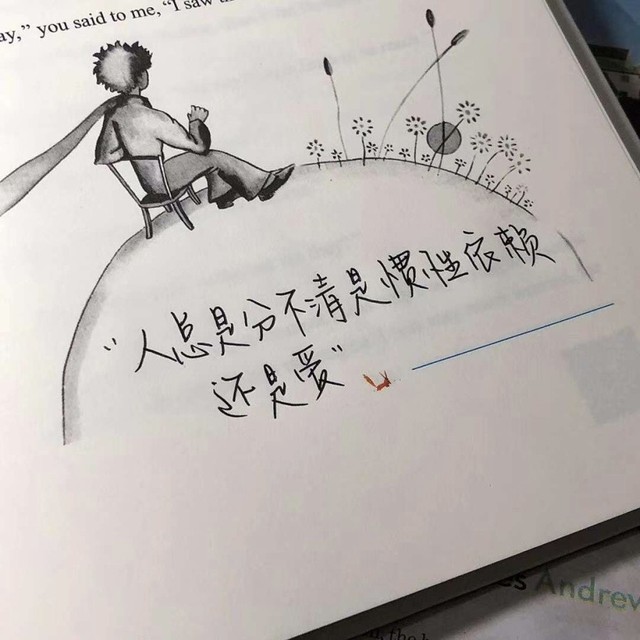 ay,” you said to me, “I saw
“人总是分不清是惯性依赖
还是爱”
es Andrew